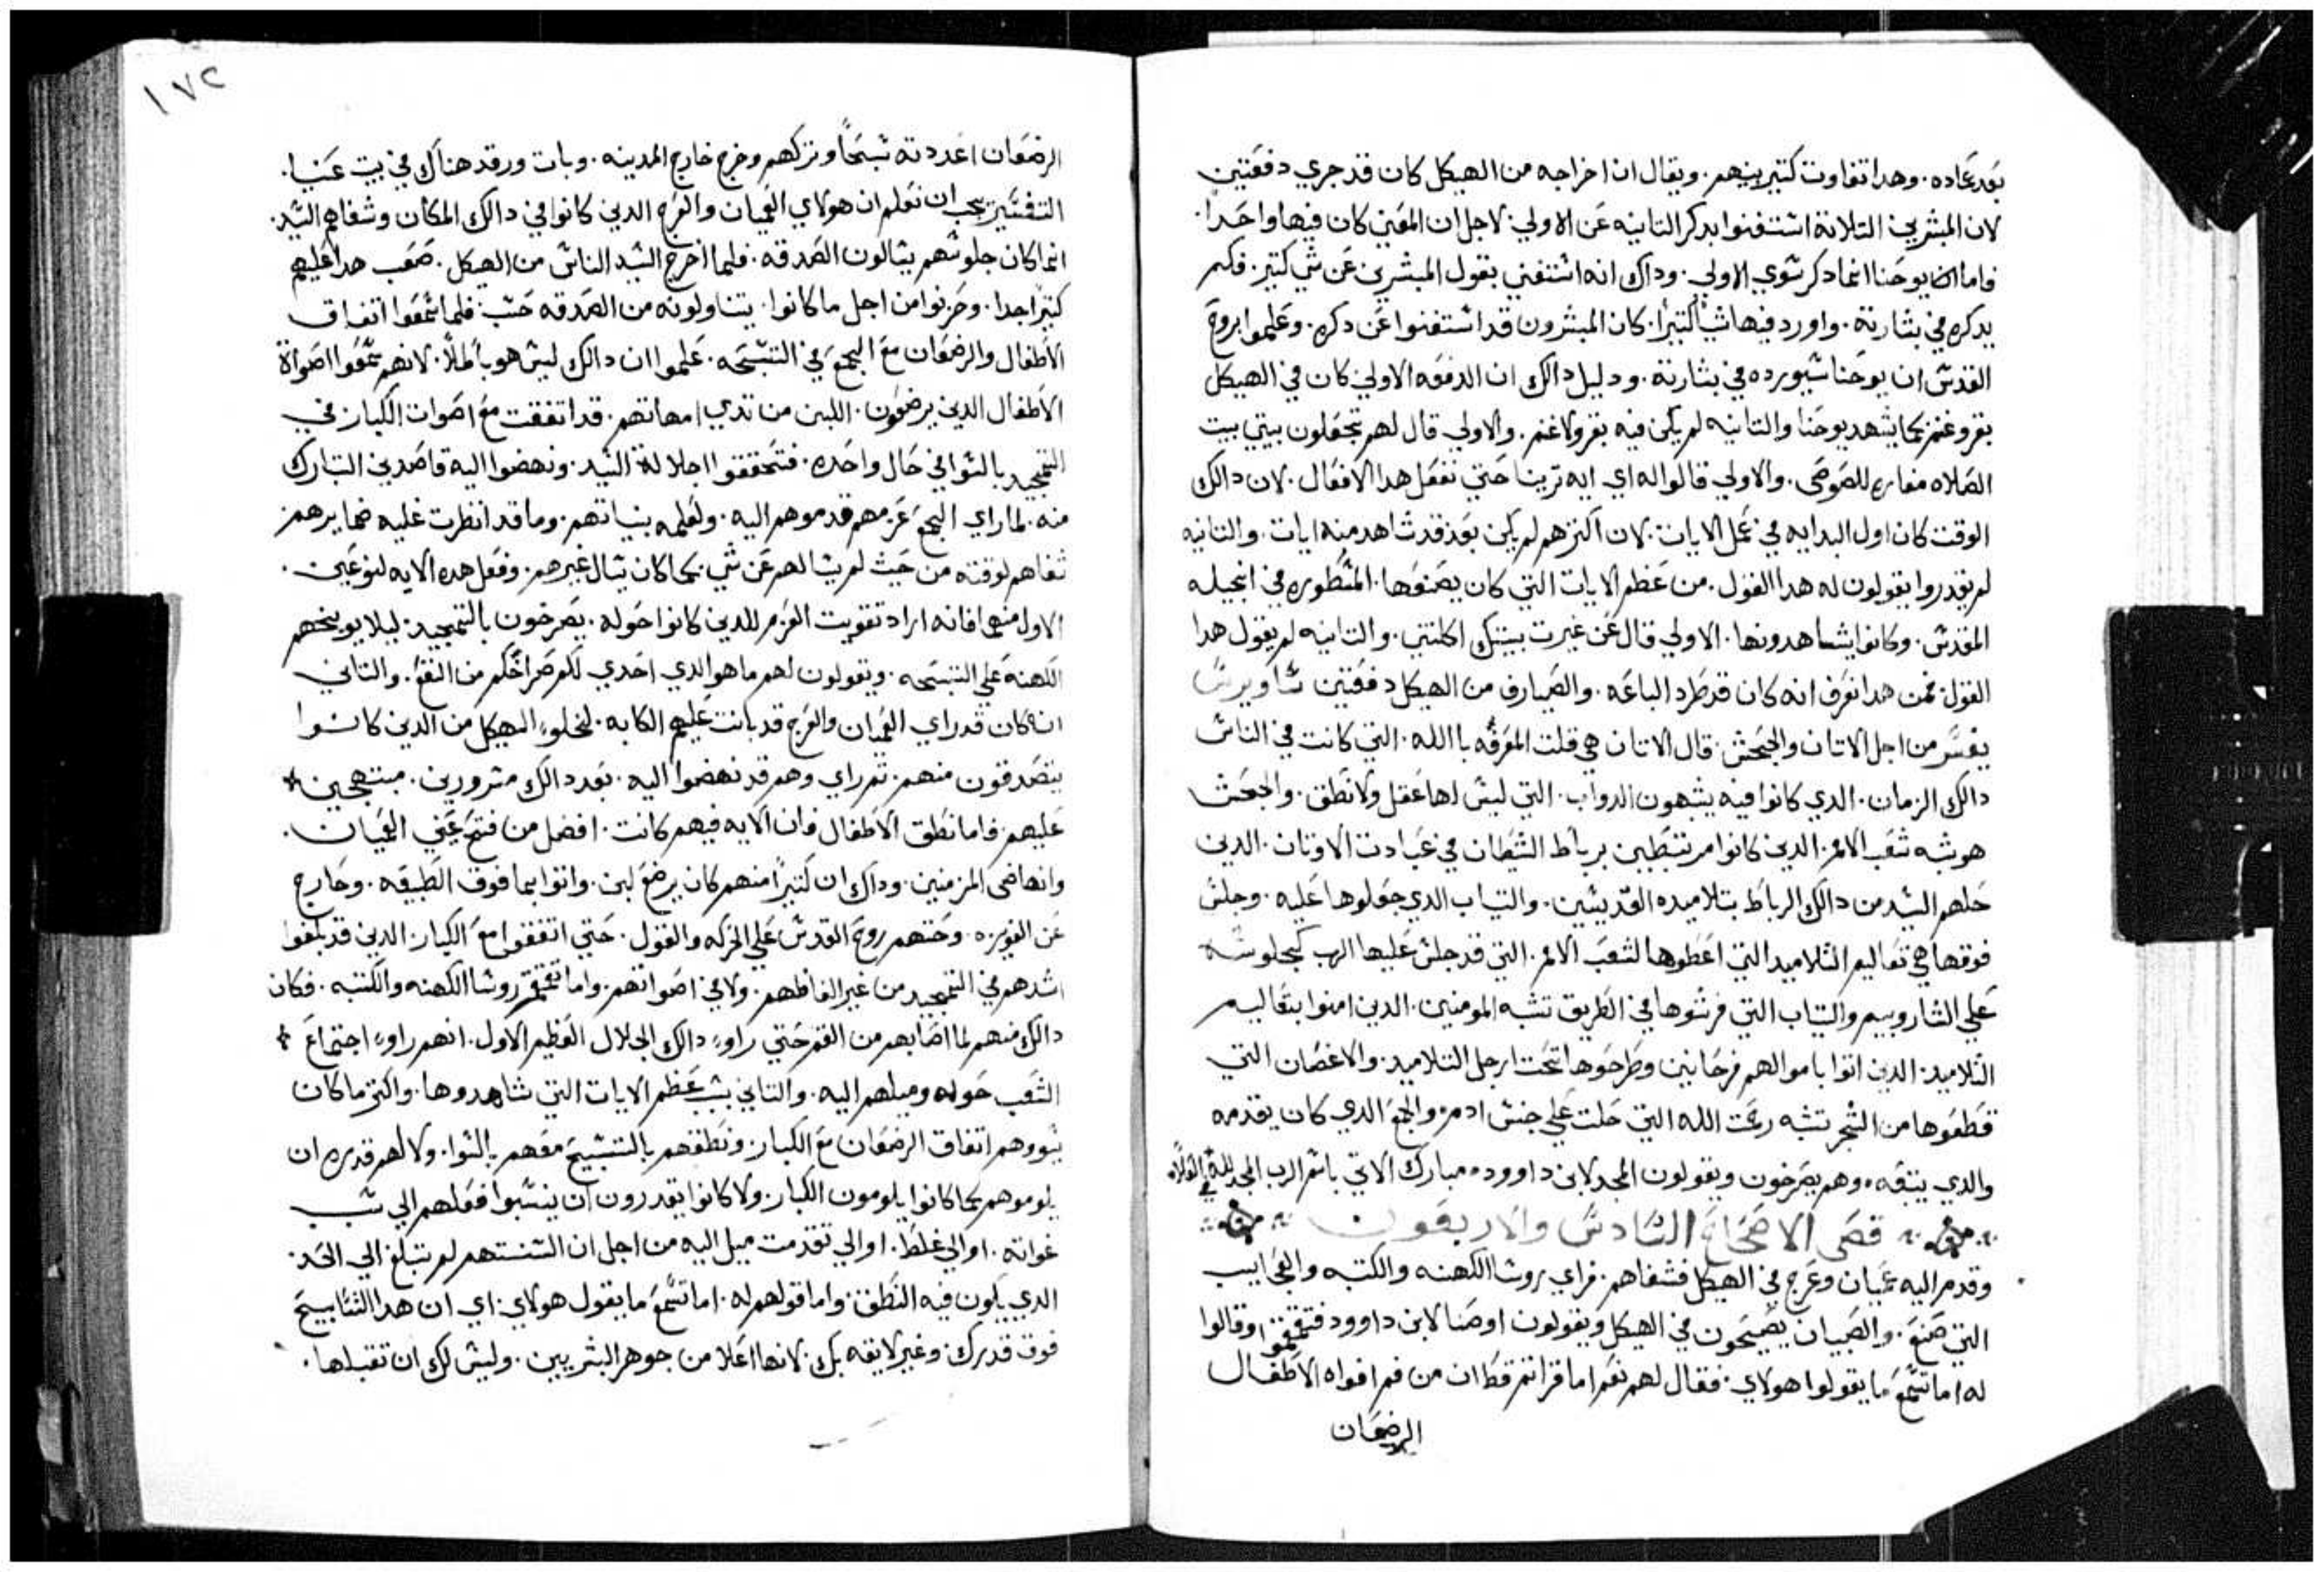 بعد عاده. وهدا تفاوت كتير بينهم. ويقال ان اخراجه من الهيكل كان قد جري دفعتين
لان المبشرين التلاتة استغنوا بدكر التانيه عن الاولي. لاجل ان المعني كان فيها واحدا.
فاما يوحنا انما دكر سوي الاولي. وداك انه استغني بقول المبشرين عن شي كتير. فلم
يدكره في بشارته. واورد فيها شيا كتيرا. كان المبشرون قد استغنوا عن دكره. وعلموا بروح
القدس ان يوحنا سيورده في بشارته. ودليل دالك ان الدفعه الاولي كان في الهيكل
بقر وغنم كما يشهد يوحنا والتانيه لم يكن فيه بقر ولا غنم. والاولي قال لهم تجعلون بيتي بيت
الصلاه مغاره للصوص. والاولي قالوا له اي ايه ترينا حتي نفعل هدا الافعال. لان دالك
الوقت كان اول البدايه في عمل الايات. لان اكترهم لم يكن بعد قد شاهد منه ايات. والتانيه
لم يقدروا يقولون له هدا القول. من عظم الايات التي كان يصنعها. المسطوره في انجيله
المقدس. وكانوا يشاهدونها. الاولي قال عن غيرت بيتك اكلتني. والتانيه لم يقول هدا
القول. فمن هدا نعرف انه كان قد طرد الباعه. والصيارف من الهيكل دفعتين ساويرس
يفسر من اجل الاتان والجحش. قال الاتان هي قلت المعرفه باالله. التي كانت في الناس
دالك الزمان. الدي كانوا فيه يشبهون الدواب. التي ليس لها عقل ولا نطق. والجحش
هو شبه شعب الامم. الدين كانوا مرتبطين برباط الشيطان في عبادت الاوتان. الدين
حلهم السيد من دالك الرباط بتلاميده القديسين. والتياب الدي جعلوها عليه. وجلس
فوقها هي تعاليم التلاميد التي اعطوها لشعب الامم. التي قد جلس عليها الرب كجلوسه
علي الشاروبيم والتياب التي فرشوها في الطريق تشبه المومنين. الدين امنوا بتعاليم
التلاميد. الدين اتوا باموالهم فرحانين وطرحوها تحت ارجل التلاميد. والاغصان التي
قطعوها من الشجر تشبه رحمت الله التي حلت علي جنس ادم. والجمع الدي كان يقدمه
والدي يتبعه. وهم يصرخون ويقولون المجد لابن داوود. مبارك الاتي باسم الرب المجد لله في العلاه
فصى الاصحاح السادس والاربعون
وقدم اليه عميان وعرج في الهيكل فشفاهم. فراي روسا الكهنه والكتبه والعجايب
التي صنع. والصبيان يصيحون في الهيكل ويقولون اوصنا لابن داوود فتقمقموا وقالوا
له اما تسمع ما يقولوا هولاي. فقال لهم نعم اما قراتم قط ان من فم افواه الاطفال
الرضعان
١٧٢
الرضعان اعددته تسبحا وتركهم وخرج خارج المدينه. وبات ورقد هناك في بيت عنيا.
التفسير يجب ان نعلم ان هولاي العميان والعرج الدين كانوا في دالك المكان وشفاهم السيد.
انما كان جلوسهم يسالون الصدقه. فلما اخرج السيد الناس من الهيكل. صعب هدا عليهم
كتيرا جدا. وحزنوا من اجل ما كانوا. يتناولونه من الصدقه حسب. فلما سمعوا اتفاق
الاطفال والرضعان مع الجمع في التسبحه. علموا ان دالك ليس هو باطلا. لانهم سمعوا اصواة
الاطفال الدين يرضعون. اللبن من تدي امهاتهم. قد اتفقت مع اصوات الكبار في
التمجيد بالسوا في حال واحده. فتحققوا اجلالة السيد. ونهضوا اليه قاصدين التبارك
منه. لما راي الجمع عزمهم قدموهم اليه. ولعلمه بنياتهم. وما قد انطرت عليه ضمايرهم
شفاهم لوقته من حيث لم يسالهم عن شي. كما كان يسال غيرهم. وفعل هده الايه لنوعين.
الاول منهما فانه اراد تقويت العزم للدين كانوا حوله. يصرخون بالتمجيد. ليلا يوبخهم
الكهنه علي التسبحه. ويقولون لهم ما هو الدي احدي لكم صراخكم من النفع. والتاني
انه كان قد راي العميان والعرج قد بانت عليهم الكابه. لخلو الهيكل من الدين كانوا
يتصدقون منهم. تم راي وهم قد نهضوا اليه. بعد دالك مسرورين. مبتهجين
عليهم. فاما نطق الاطفال فان الايه فيهم كانت. افضل من فتح عيني العميان.
وانهاضى المزمنين. وداك ان كتيرا منهم كان يرضع لبن. واتوا بما فوق الطبيعه. وخارج
عن الغريزه. وحتهم روح القدس علي الحركه والقول. حتي اتفقوا مع الكبار. الدين قد بلغوا
اشدهم في التمجيد من غير الفاظهم. ولا في اصواتهم. واما تقمقم روسا الكهنه والكتبه. فكان
دالك منهم لما اصابهم من الغم حتي راو دالك الجلال العظيم الاول. انهم راو اجتماع
الشعب حوله وميلهم اليه. والتاني بسبب عظم الايات التي شاهدوها. واكتر ما كان
يسووهم اتفاق الرضعان مع الكبار. ونطقهم بالتسبيح معهم بالسوا. ولا لهم قدره ان
يلوموهم كما كانوا يلومون الكبار. ولا كانوا يقدرون ان ينسبوا فعلهم الي سبب
غوايه. او الي غلط. او الي تقدمت ميل اليه من اجل ان السنتهم لم تبلغ الي الحد
الدي يكون فيه النطق. واما قولهم له. اما تسمع ما يقول هولاي. اي ان هدا التسابيح
فوق قدرك. وغير لايقه بك. لانها اعلا من جوهر البشريين. وليس لك ان تقبلها.